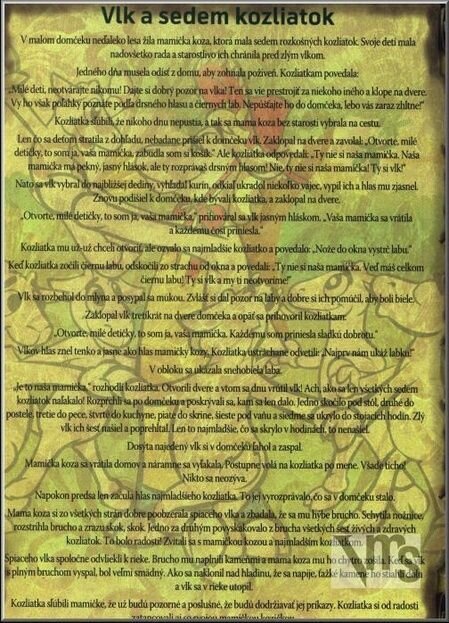 Vlk a sedem kozliatok
V malom domčeku neďaleko lesa žila mamička koza, ktorá mala sedem rozkošných kozliatok. Svoje deti mala
nadovšetko rada a starostlivo ich chránila pred zlým vlkom.
Jedného dňa musela odísť z domu, aby zohnala potravu. Kozliatkam povedala:
„Milé deti, neotvárajte nikomu! Dajte si dobrý pozor na vlka! Ten sa vie prestrojiť za niekoho iného a klope na dvere.
Vy ho však poľahky poznáte podľa drsného hlasu a čiernych láb. Nepúšťajte ho do domčeka, lebo vás zaraz zhltne!"
Kozliatka sľúbili, že nikoho dnu nepustia, a tak sa mama koza bez starosti vybrala na cestu.
Len čo sa deťom stratila z dohľadu, nebadane prišiel k domčeku vlk. Zaklopal na dvere a zavolal: „Otvorte, milé
detičky, to som ja, vaša mamička, zabudla som si košík." Ale kozliatka odpovedali: „Ty nie si naša mamička. Naša
mamička má pekný, jasný hlások, ale ty rozprávaš drsným hlasom! Nie, ty nie si naša mamička! Ty si vlk!"
Nato sa vlk vybral do najbližšej dediny, vyhľadal kurín, odkiaľ ukradol niekoľko vajec, vypil ich a hlas mu zjasnel.
Znovu podišiel k domčeku, kde bývali kozliatka, a zaklopal na dvere.
„Otvorte, milé detičky, to som ja, vaša mamička," prihováral sa vlk jasným hláskom. „Vaša mamička sa vrátila
a každému čosi priniesla."
Kozliatka mu už-už chceli otvoriť, ale ozvalo sa najmladšie kozliatko a povedalo: „Nože do okna vystrč labu."
Keď kozliatka zočili čiernu labu, odskočili zo strachu od okna a povedali: „Ty nie si naša mamička. Veď máš celkom
čiernu labu! Ty si vlk a my ti neotvoríme!"
Vlk sa rozbehol do mlyna a posypal sa múkou. Zvlášť si dal pozor na laby a dobre si ich pomúčil, aby boli biele.
Zaklopal vlk tretíkrát na dvere domčeka a opäť sa prihovoril kozliatkam:
„Otvorte, milé detičky, to som ja, vaša mamička. Každému som priniesla sladkú dobrotu."
Vlkov hlas znel tenko a jasne ako hlas mamičky kozy. Kozliatka ustráchane odvetili: „Najprv nám ukáž labku!"
V obloku sa ukázala snehobiela laba.
„Je to naša mamička," rozhodli kozliatka. Otvorili dvere a vtom sa dnu vrútil vlk! Ach, ako sa len všetkých sedem
kozliatok naľakalo! Rozpŕchli sa po domčeku a poskrývali sa, kam sa len dalo. Jedno skočilo pod stôl, druhé do
postele, tretie do pece, štvrté do kuchyne, piate do skrine, šieste pod vaňu a siedme sa ukrylo do stojacích hodín. Zlý
vlk ich šesť našiel a poprehĺtal. Len to najmladšie, čo sa skrylo v hodinách, to nenašiel.
Dosýta najedený vlk si v domčeku ľahol a zaspal.
Mamička koza sa vrátila domov a náramne sa vyľakala. Postupne volá na kozliatka po mene. Všade ticho!
Nikto sa neozýva.
Napokon predsa len začula hlas najmladšieho kozliatka. To jej vyrozprávalo, čo sa v domčeku stalo.
Mama koza si zo všetkých strán dobre poobzerala spiaceho vlka a zbadala, že sa mu hýbe brucho. Schytila nožnice,
rozstrihla brucho a zrazu skok, skok. Jedno za druhým povyskakovalo z brucha všetkých šesť živých a zdravých
kozliatok. To bolo radosti! Zvítali sa s mamičkou kozou a najmladším kozliatkom.
Spiaceho vlka spoločne odvliekli k rieke. Brucho mu naplnili kameňmi a mama koza mu ho chytro zošila. Keď sa vlk
s plným bruchom vyspal, bol veľmi smädný. Ako sa naklonil nad hladinu, že sa napije, ťažké kamene ho stiahli dolu
a vlk sa v rieke utopil.
Kozliatka sľúbili mamičke, že už budú pozorné a poslušné, že budú dodržiavať jej príkazy. Kozliatka si od radosti
zatancovali aj so svojou mamičkou kozičkou.